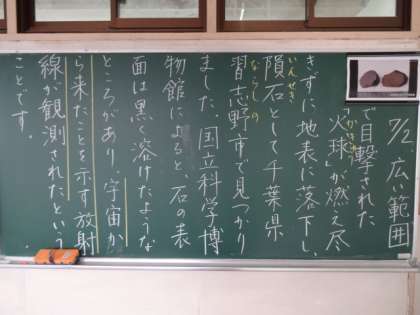 7/2、広い範囲
で目撃された
"火球"が燃え尽
きずに地表に落下し、
いんせき
隕石として千葉県
ならしの
習志野市で見つかり
ました。国立科学博
物館によると、石の表
面は黒く溶けたような
ところがあり、宇宙か
ら来たことを示す放射
線が観測されたという
ことです。